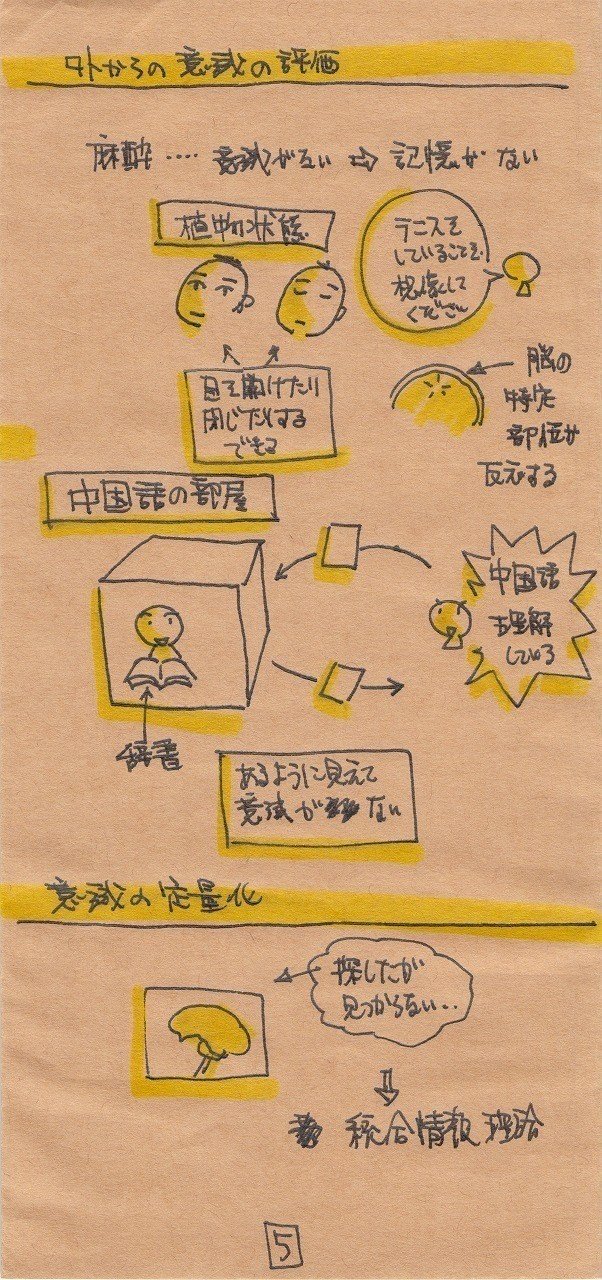 外からの意識の評価
麻酔‥‥意識がない ⇨ 記憶がない
植物状態
テニスを
していることを
想像して
ください
目を開けたり
閉じたりする
できる
脳の
特定
部位が
反応する
中国語の部屋
中国語
理解
している
辞書
あるように見えて
意識がない
意識の定量化
探したが
見つからない‥
統合情報理論
5